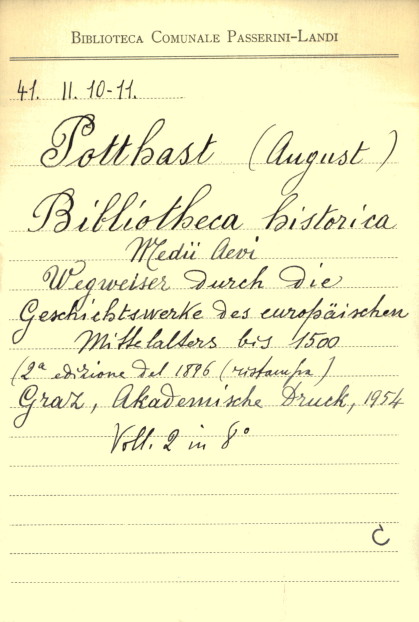 BIBLIOTECA COMUNALE PASSERINI-LANDI
41. II. 10-11.
Potthast (August)
Bibliotheca historica
Medii Aevi
Wegweiser durch die
Geschichtswerke des europäischen
Mittelalters bis 1500
(2ª edizione del 1896 (ristampa)
Graz, Akademische Druck, 1954
Voll. 2 in 8°
C